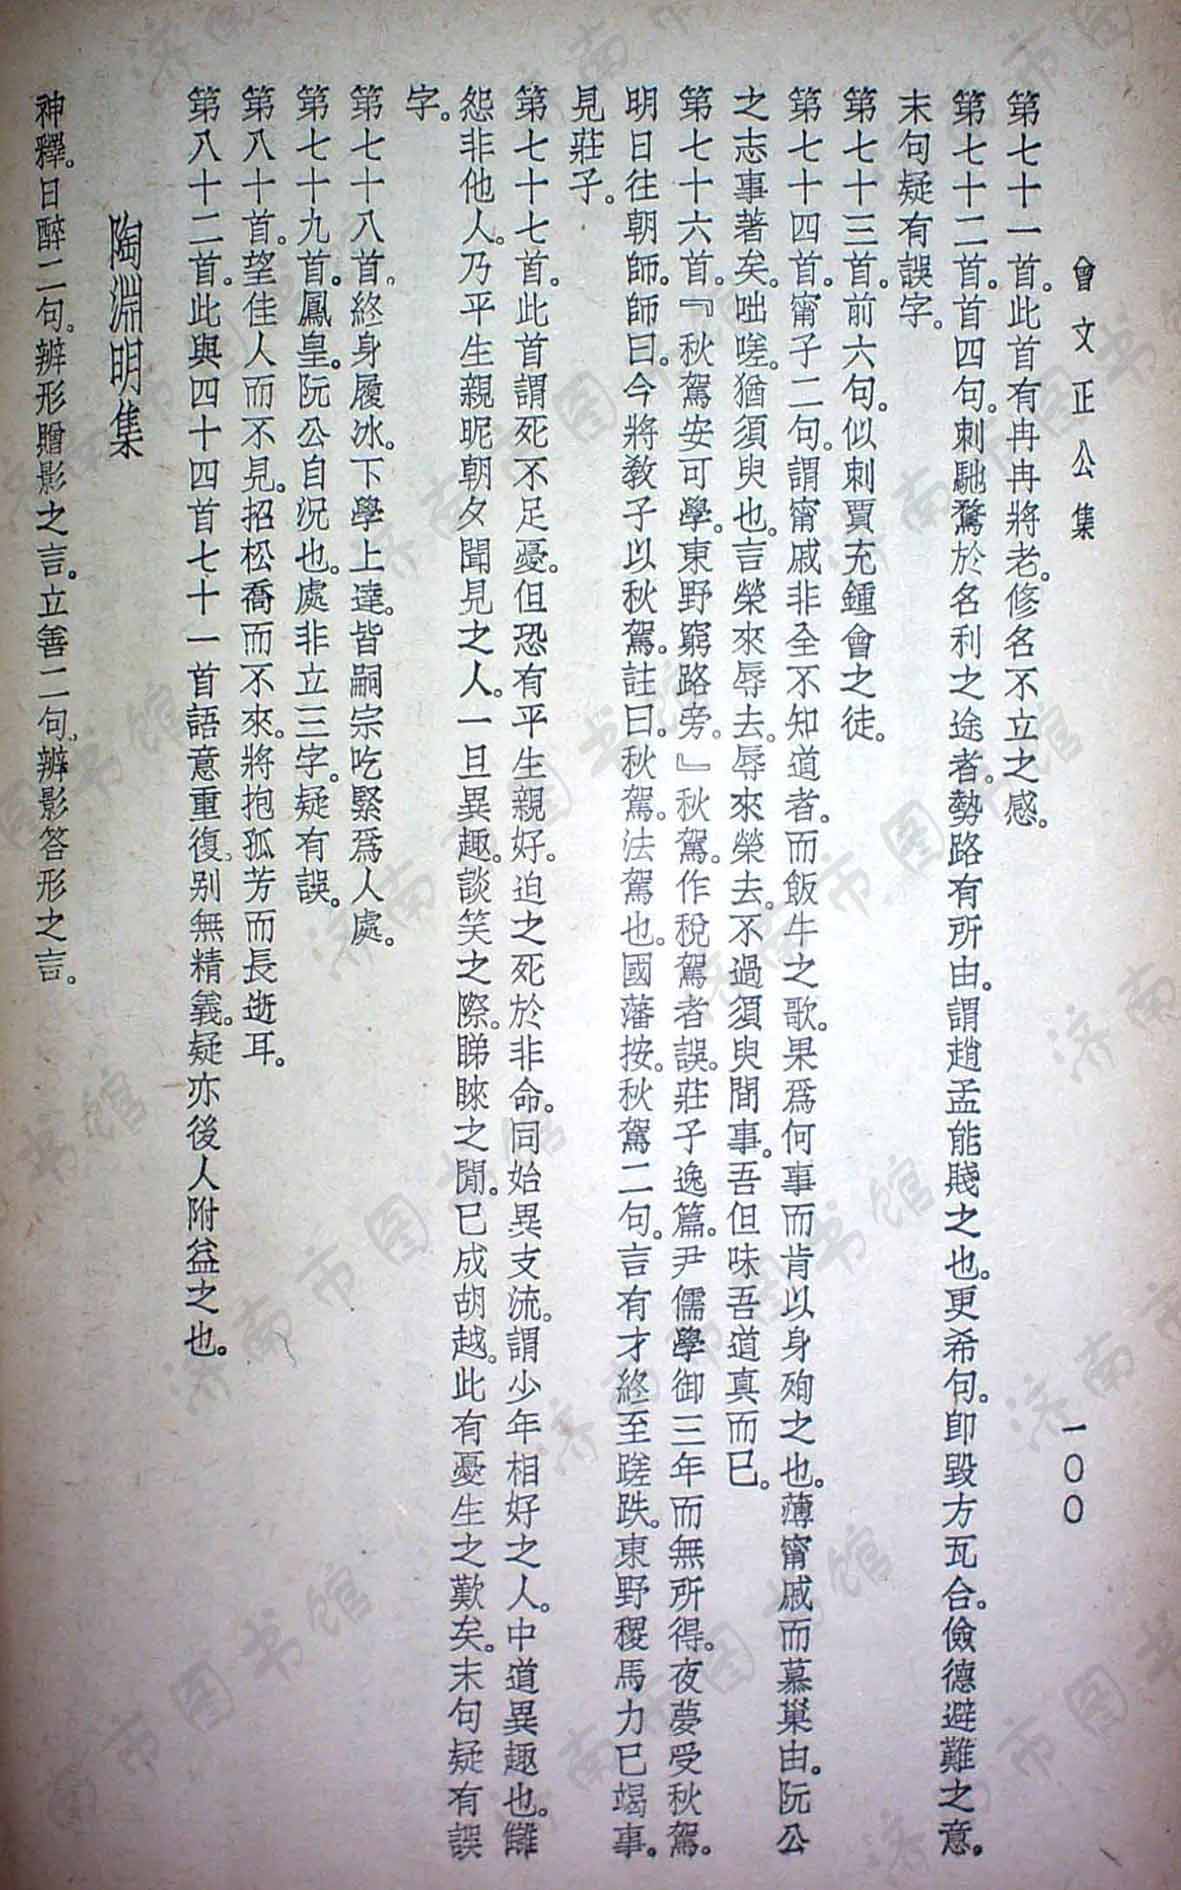 曾文正公集
一〇〇
第七十一首。此首有冉冉將老。修名不立之感。
第七十二首。首四句。刺馳騖於名利之途者。勢路有所由。謂趙孟能賤之也。更希句。卽毀方瓦合。儉德避難之意。
末句疑有誤字。
第七十三首。前六句。似刺賈充鍾會之徒。
第七十四首。甯子二句。謂甯戚非全不知道者。而飯牛之歌。果爲何事而肯以身殉之也。薄甯戚而慕巢由。阮公
之志事著矣。咄嗟。猶須臾也。言榮來辱去。辱來榮去。不過須臾間事。吾但味吾道真而已。
第七十六首。『秋駕安可學。東野窮路旁。』秋駕。作稅駕者誤。莊子逸篇。尹儒學御三年而無所得。夜夢受秋駕。
明日往朝師。師曰。今將教子以秋駕。註曰。秋駕。法駕也。國藩按。秋駕二句。言有才終至蹉跌。東野稷馬力已竭事。
見莊子。
第七十七首。此首謂死不足憂。但恐有平生親好。迫之死於非命。同始異支流。謂少年相好之人。中道異趣也。讎
怨非他人。乃平生親昵朝夕聞見之人。一旦異趣。談笑之際。睇睞之閒。已成胡越。此有憂生之歎矣。末句疑有誤
字。
第七十八首。終身履冰。下學上達。皆嗣宗吃緊爲人處。
第七十九首。鳳皇。阮公自況也。處非立三字。疑有誤。
第八十首。望佳人而不見。招松喬而不來。將抱孤芳而長逝耳。
第八十二首。此與四十四首七十一首語意重復。别無精義。疑亦後人附益之也。
陶淵明集
神釋。日醉二句。辨形贈影之言。立善二句。辨影答形之言。
济南市图书馆